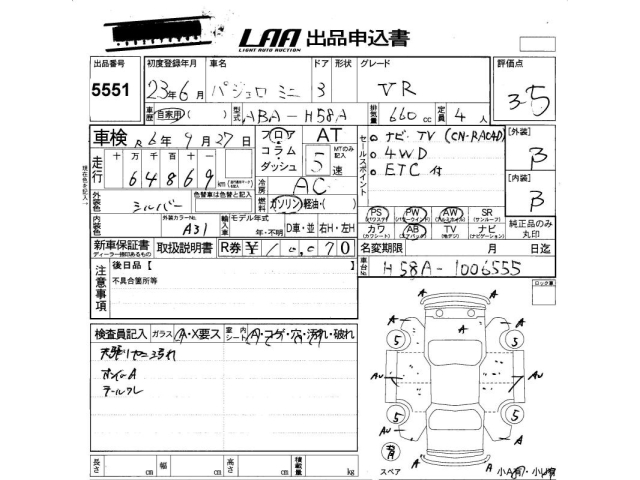 LAA 出品申込書
LIGHT AUTO AUCTION
出品番号 初度登録年月 車名 ドア 形状 グレード 評価点
5551 23年6月 パジェロ ミニ 3 VR 3.5
車歴 自家用( ) 型式 ABA-H58A 排気量 660cc 定員 4人
車検 R6年9月27日 フロア AT
コラム MTのみ記入
ダッシュ 5速
セールスポイント ナビ・TV (CN-RA04D)
4WD
ETC付
[外装] B
[内装] B
現在色を記入
走行 十万千百十 64869 km
冷房 AC
燃料 ガソリン・軽油・( )
外装色 シルバー 色替車は色替と記入
内装色 外装カラーNo. A31
輸入車 モデル年式 年・不明 D車・並 右H・左H
PS PW AW SR
(パワステ) (パワーウインド) (アルミホイル) (サンルーフ)
カワ AB TV ナビ
(カワシート) (エアバック) (地デジ) (ナビゲーション)
純正品のみ丸印
新車保証書 取扱説明書 R券 ¥10,070 名変期限 月 日迄
ディーラー捺印あるもの
車台No. H58A-1006555
注意事項 後日品【 】
不具合箇所等
ロック車
検査員記入 ガラス A・X要ス 室内シート A・コゲ・穴・汚れ・破れ
天張リヤニヨゴれ
テールワレ
A A
A A
5 5
AW AW
5 5
AW A
A
スペア
長さ cm 幅 cm 高さ cm 積載量 kg